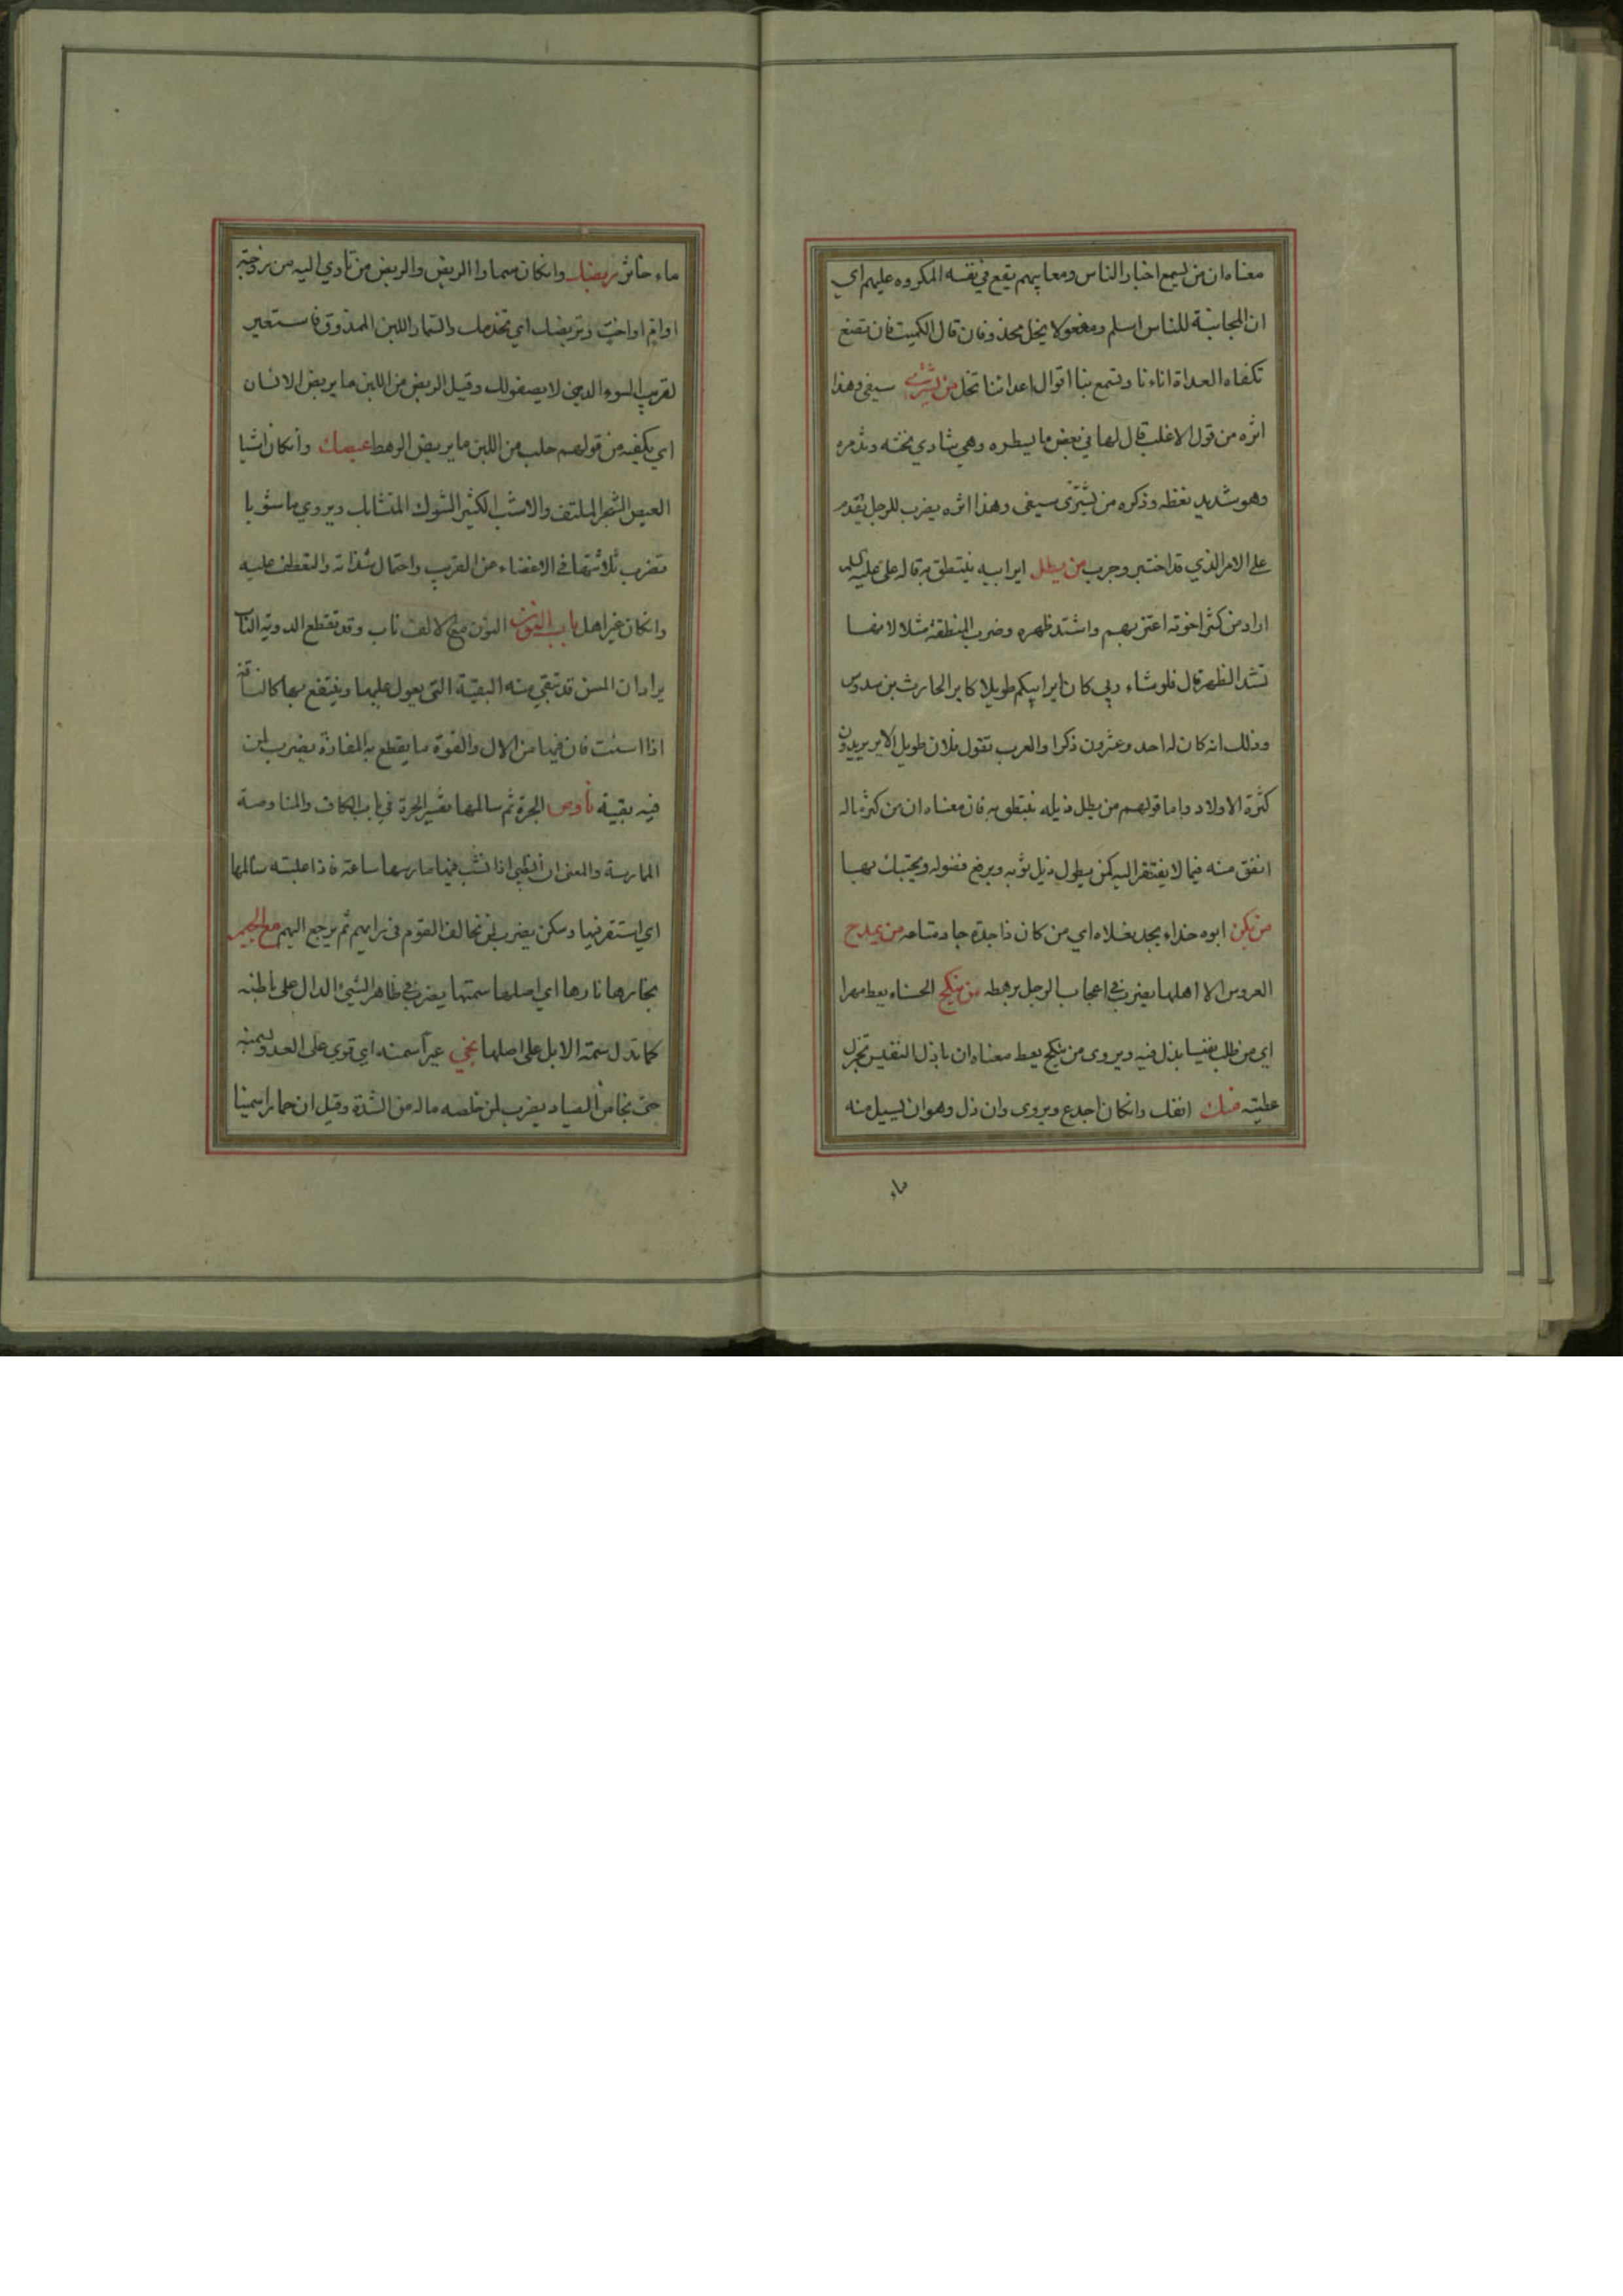 معناه ان من يسمع اخبار الناس ومعايبهم يقع في نفسه المكروه عليهم اي
ان المجانبة للناس اسلم ومفعولا يخل محذوفان قال الكميت فان تصغ
تكفاه العداة اناءنا وتسمع بنا اقوال اعدائنا تخل من يشتري سيفي وهذا
اثره من قول الاغلب قال لها في بعض ما يسطره وهي
وهو شديد نغظه وذكره من يشترى سيفى وهذا اثره يضرب للرجل يقدم
على الامر الذي قد اختبر وجرب من يطل اير ابيه ينتطق به قاله على عليه السلم
اراد من كثر اخوته اعتز بهم واشتد ظهره وضرب المنطقة مثلا لانها
تشد الظهر قال فلو شاء ربي كان اير ابيكم طويلا كاير الحارث بن سدوس
وذلك انه كان له احد وعشرون ذكرا والعرب تقول فلان طويل الاير يريدون
كثرة الاولاد واما قولهم من يطل ذيله ينتطق به فان معناه ان من كثر ماله
انفق منه فيما لا يفتقر اليه كمن يطول ذيل ثوبه ويرفع فضوله ويحتبك بها
من يكن ابوه حذاء يجد نعلاه اي من كان ذا جدة جاد متاعه من يمدح
العروس الا اهلها يضرب في اعجاب الرجل برهطه من ينكح الحسناء يعط مهرا
اي من طلب نفيسا بذل فيه ويروى من ينكح يعط معناه ان باذل النفيس تجزل
عطيته منك انفك وانكان اجدع ويروى وان ذل وهو ان يسيل منه
ماء
ماء خاثر ربضك وانكان سمارا الربض والربض من تأوي اليه من زوجة
او ام او اخت وتربضك اي تخدمك والسمار اللبن الممذوق فاستعير
لقريب السوء الذي لا يصفو لك وقيل الربض من اللبن ما يربض الانسان
اي يكفيه من قولهم حلب من اللبن ما يربض الرهط عيصك وانكان اشبا
العيص الشجر الملتف والاشب الكثير الشوك المتشابك ويروى ما شوبا
تضرب ثلاثتها في الاغضاء عن القريب واحتمال شذاته والتعطف عليه
وانكان غير اهل باب النون النون مع الالف ناب وقد تقطع الدوية الناب
يراد ان المسن قد تبقي منه البقية التي يعول عليها وينتفع بها كالناقة
اذا اسنت فان فيها من الال والقوة ما يقطع به المفازة يضرب لمن
فيه بقية ناوص الجرة ثم سالمها تفسير الجرة في باب الكاف والمناوصة
الممارسة والمعنى ان الظبي اذا نشب فيها مارسها ساعة فاذا غلبته سالمها
اي استقر فيها وسكن يضرب لمن خالف القوم في رايهم ثم يرجع اليهم مع الجيم
نجارها نارها اي اصلها سمتها يضرب في ظاهر الشيء الدال على باطنه
كما تدل سمة الابل على اصلها نجى عيرا سمنه اي قوي على العدو لسمنه
حتى نجا من الصياد يضرب لمن خلصه ماله من الشدة وقيل ان حمارا سمينا